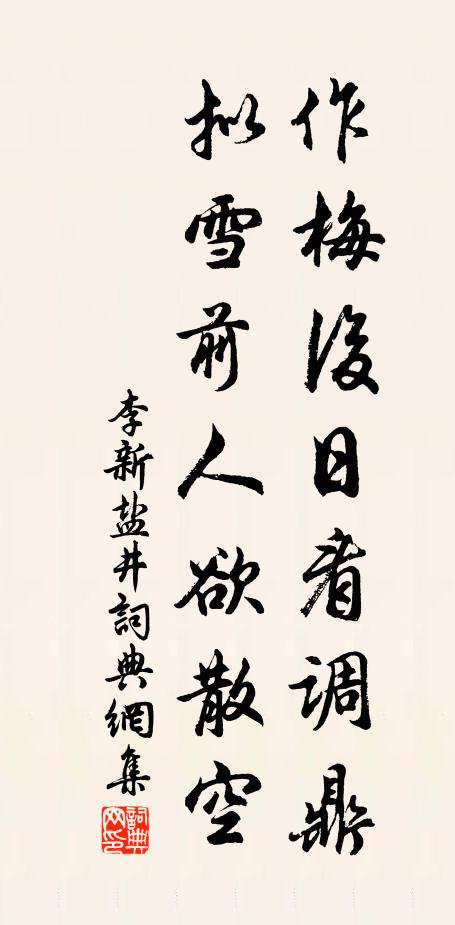 作梅後日看调鼎
拟雪前人欲散空
李新盐井詞典網集
詞典